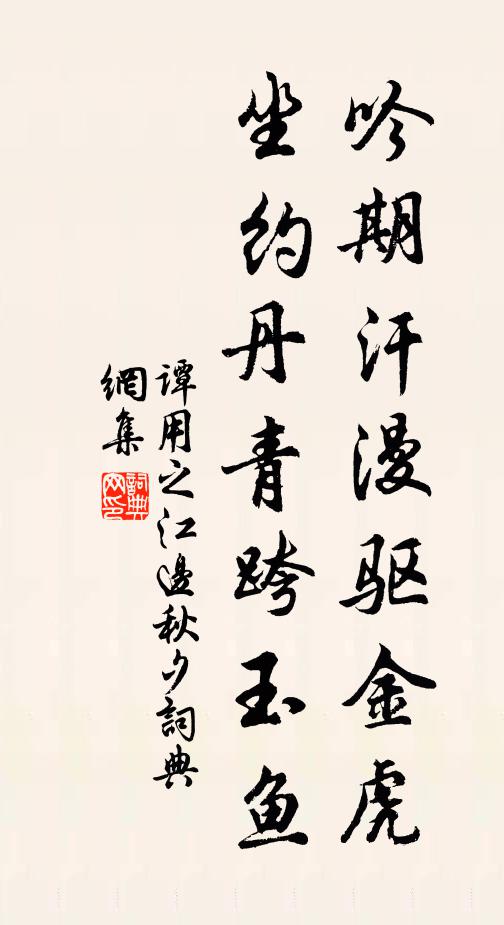 吟期汗漫驱金虎
坐约丹青跨玉鱼
谭用之江邊秋夕詞典
網集
詞典
网印